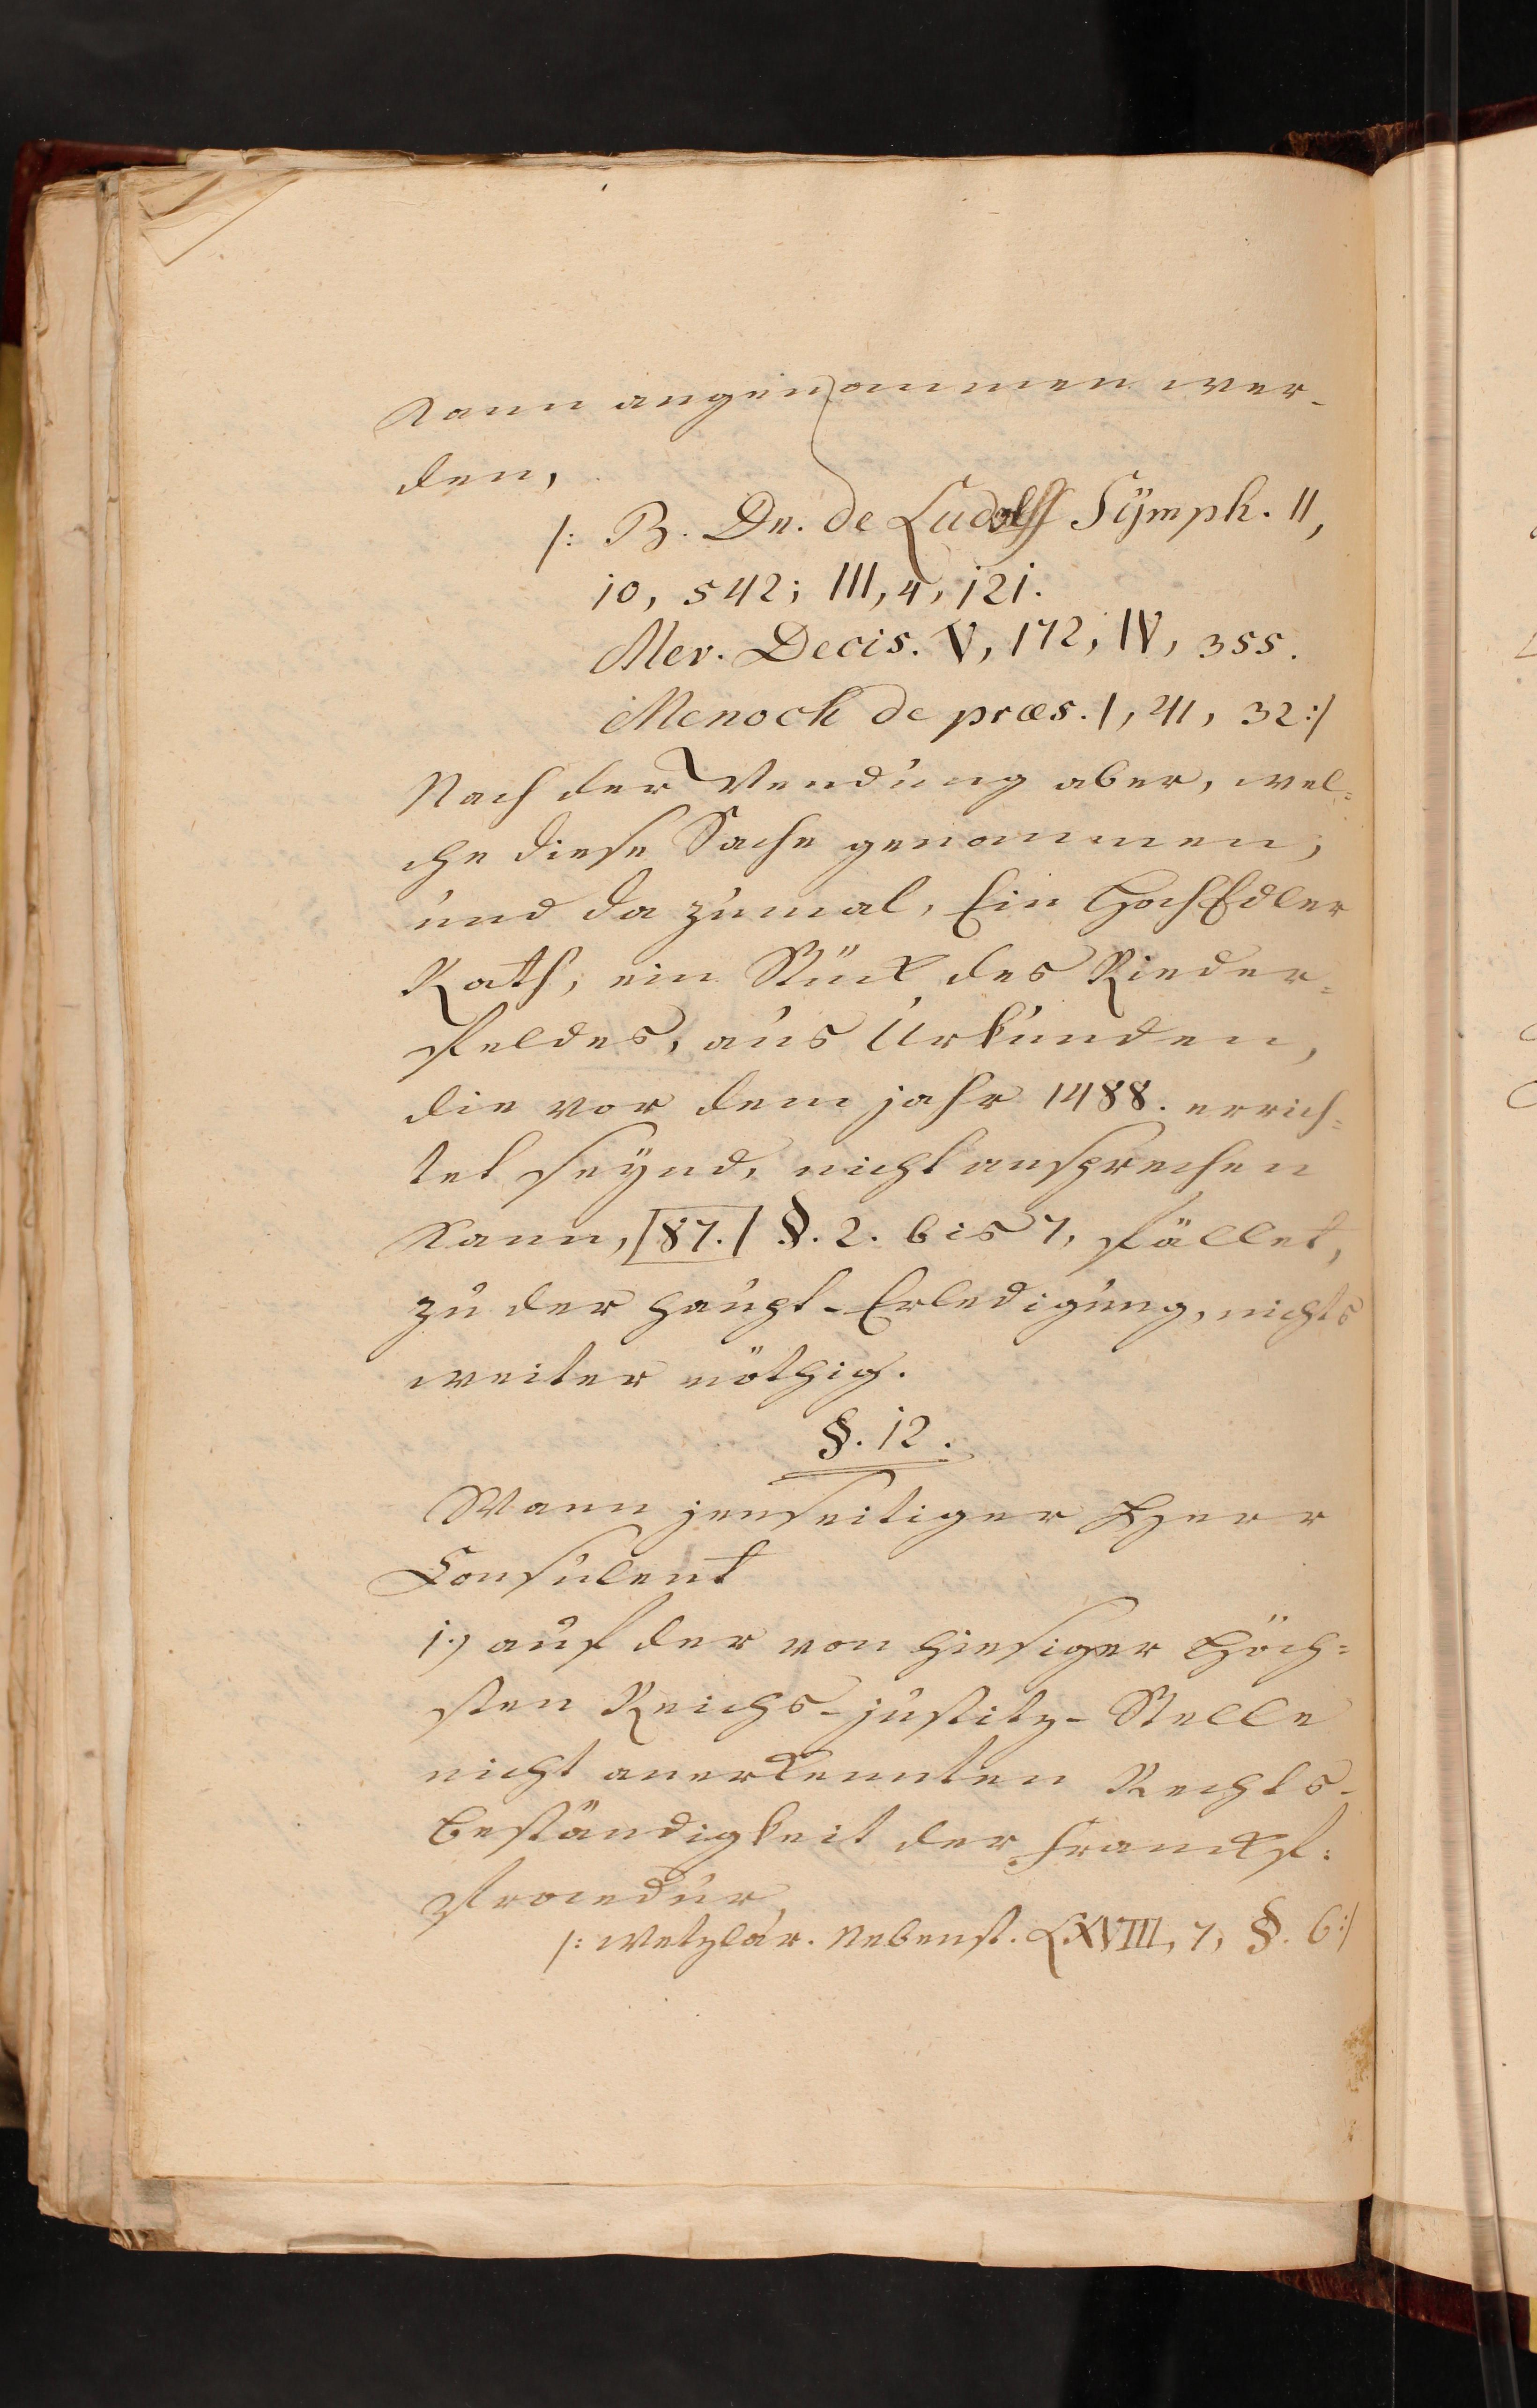 kann angenommen wer-
den,
/: B. Dn. de Ludolff Sÿmph. II,
10, 542; III, 4, 121.
Mev. Decis. V, 172, IV, 355.
Menoch de præs. 1, 41, 32:/
Nach der Wendung aber, wel=
che diese Sache genommen,
und da zumal, Ein HochEdler
Rath, ein Stück des Rieder=
feldes, aus Urkunden,
die vor dem jahr 1488. errich=
tet seÿnd, nicht ansprechen
kann, |87.| §. 2. bis 7, fället,
zu der haupt-Erledigung, nichts
weiter nöthig.
§. 12.
Wann jenseitiger Herr
Consulent
1.) auf der von hiesiger Höch=
sten Reichs-justitz-Stelle
nicht anerkennten Rechts-
beständigkeit der Franckf:
Procedur,
/: Wetzlar. Nebenst. LXVIII, 7, §. 6:/